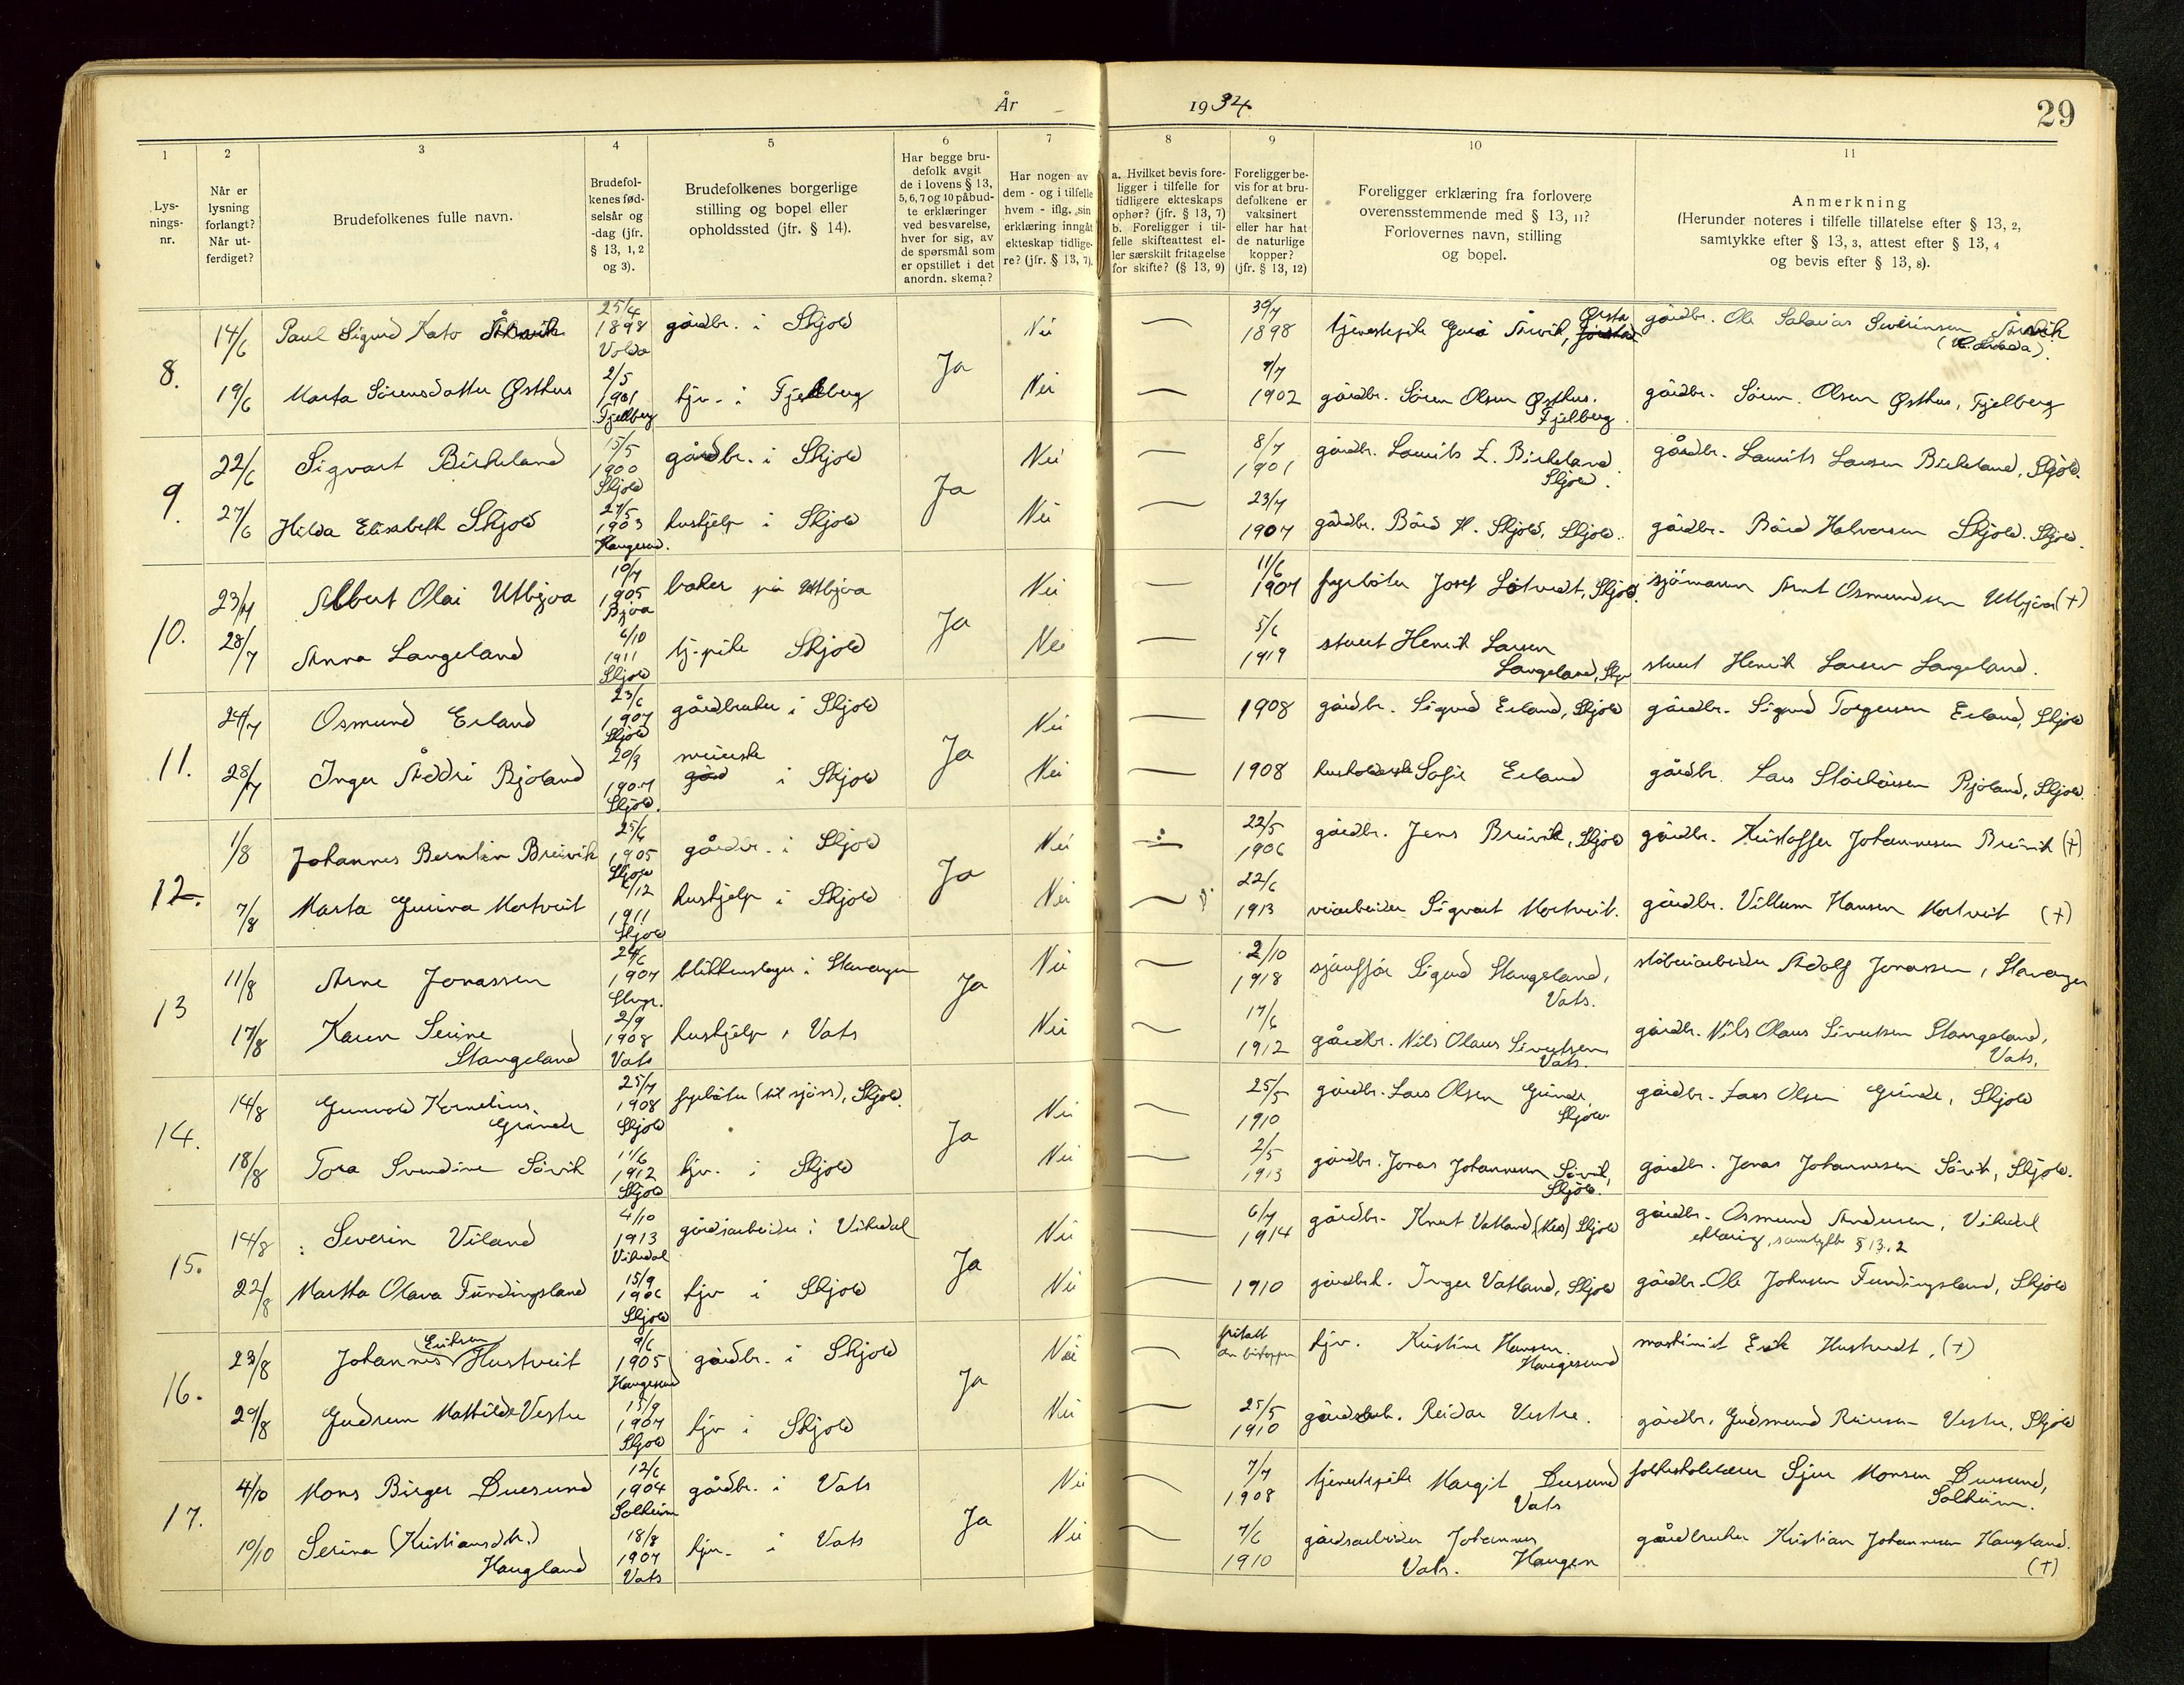 År 1934
29
1
2
3
4
5
6
7
8
9
10
11
Lys-
nings-
nr.
Når er
lysning
forlangt?
Når ut-
ferdiget?
Brudefolkenes fulle navn.
Brudefol-
kenes fød-
selsår og
-dag (jfr.
§ 13, 1, 2
og 3).
Brudefolkenes borgerlige
stilling og bopel eller
opholdssted (jfr. § 14).
Har begge bru-
defolk avgit
de i lovens § 13,
5, 6, 7 og 10 påbud-
te erklæringer
ved besvarelse,
hver for sig, av
de spørsmål som
er opstillet i det
anordn. skema?
Har nogen av
dem - og i tilfelle
hvem - iflg. sin
erklæring inngått
ekteskap tidlige-
re? (jfr. § 13, 7).
a. Hvilket bevis fore-
ligger i tilfelle for
tidligere ekteskaps
ophør? (jfr. § 13, 7)
b. Foreligger i til-
felle skifteattest el-
ler særskilt fritagelse
for skifte? (§ 13, 9)
Foreligger be-
vis for at bru-
defolkene er
vaksinert
eller har hat
de naturlige
kopper?
(jfr. § 13, 12)
Foreligger erklæring fra forlovere
overensstemmende med § 13, 11?
Forlovernes navn, stilling
og bopel.
Anmerkning
(Herunder noteres i tilfelle tillatelse efter § 13, 2,
samtykke efter § 13, 3, attest efter § 13, 4
og bevis efter § 13, 8).
8.
14/6 Paul Sigurd Kato 25/4 1898 Volda gårdbr. i Skjold Ja Nei — 1898 Ørsta gårdbr. Ole
19/6 Marta Sørensdatter Østhus 2/5 1901 Fjellberg tjv. i Fjellberg Nei — 1902 gårdbr. Søren Olsen Østhus. Fjelberg gårdbr. Søren Olsen Østhus, Fjelberg
9.
22/6 Sigvart Birkeland 15/5 1900 Skjold gårdbr. i Skjold Ja Nei — 8/7 1901 gårdbr. Laurits L. Birkeland. Skjold. gårdbr. Laurits Larsen Birkeland, Skjold.
27/6 Hilda Elisabeth Skjold 27/5 1903 Haugesund. hushjelp i Skjold Nei — 23/7 1907 gårdbr. Bård H. Skjold, Skjold. gårdbr. Bård Halvorsen Skjold. Skjold.
10.
23/7 Albert Olai Utbjoa 10/7 1905 Bjoa baker på Utbjoa Ja Nei — 11/6 1907 fyrbøter Josef Skjold. sjömann Arnt Osmundsen Utbjoa (+)
28/7 Anna Langeland 6/10 1911 Skjold tj. pike Skjold Nei — 5/6 1919 stuert Henrik Larsen Langeland, stuert Henrik Larsen Langeland.
11.
24/7 Osmund Erland 23/6 1907 Skjold gårdbruker i Skjold Ja Nei — 1908 gårdbr. Sigurd Erland, Skjold gårdbr. Sigurd Torgersen Erland, Skjold
28/7 Inger Bjoland 20/3 1907 Skjold. meierske i Skjold Nei — 1908 husholderske Sofie Erland gårdbr. Lars Bjoland, Skjold.
12.
1/8 Johannes Berntin Breivik 25/6 1905 Skjold gårdbr. i Skjold Ja Nei ÷ 22/5 1906 gårdbr. Jens Breivik, Skjold gårdbr. Kristoffer Johannesen Breivik (+)
7/8 Marta Gurina Mortveit /12 1911 Skjold hushjelp i Skjold Nei — 22/6 1913 veiarbeider Sigvart Mortveit. gårdbr. Villum Hansen Mortveit (+)
13
11/8 Arne Jonassen 24/6 1907 Stvgr. blikkenslager i Stavanger Ja Nei — 2/10 1918 sjauffør Sigurd Stangeland, Vats. støberiarbeider Adolf Jonassen, Stavanger
17/8 Karen Serine Stangeland 2/9 1908 Vats hushjelp i Vats Nei — 17/6 1912 gårdbr. Nils Olaus Sivertsen Vats. gårdbr. Nils Olaus Sivertsen Stangeland, Vats.
14.
14/8 Gunvald Kornelius Grinde 25/7 1908 Skjold fyrbøter (til sjøss), Skjold. Ja Nei — 25/5 1910 gårdbr. Lars Olsen Grinde, Skjold gårdbr. Lars Olsen Grinde, Skjold
18/8 Tora Svendine Sövik 11/6 1912 Skjold tjv. i Skjold Nei — 2/5 1913 gårdbr. Jonas Johannesen Sövik, Skjold. gårdbr. Jonas Johannesen Sövik, Skjold.
15.
14/8 Severin Viland 4/10 1913 Vikedal gårdsarbeider i Vikedal Ja Nei — 6/7 1914 gårdbr. Knut Vatland Skjold gårdbr. Osmund Andersen, Vikedal
erklæring, samtykke § 13.2
22/8 Martha Olava Fundingsland 15/9 1906 Skjold tjv i Skjold Nei — 1910 gårdbrk. Inger Vatland, Skjold gårdbr. Ole Johnsen Fundingsland, Skjold
16.
23/8 Johannes Eriksen Hustveit 9/6 1905 Haugesund gårdbr. i Skjold Ja Nei — fritatt tjv. Kristine Hansen. Haugesund maskinist Erik Hustvedt, (+)
29/8 Gudrun Mathilde Vestre 15/9 1907 Skjold tjv i Skjold Nei — 25/5 1910 gårdsarb. Reidar Vestre. gårdbr. Gudmund Reiersen Vestre, Skjold
17.
4/10 Mons Birger Duesund 12/6 1904 Solheim gårdbr. i Vats Ja Nei — 7/7 1908 tjenestepike Margit Duesund Vats folkeskolelærer Sjur Monsen Duesund, Solheim.
10/10 Serina (Kristiansdtr.) Haugland 18/8 1907 Vats tjv. i Vats Nei — 7/6 1910 gårdsarbeider Johannes Haugen Vats. gårdbruker Kristian Johannesen Haugland. (+)